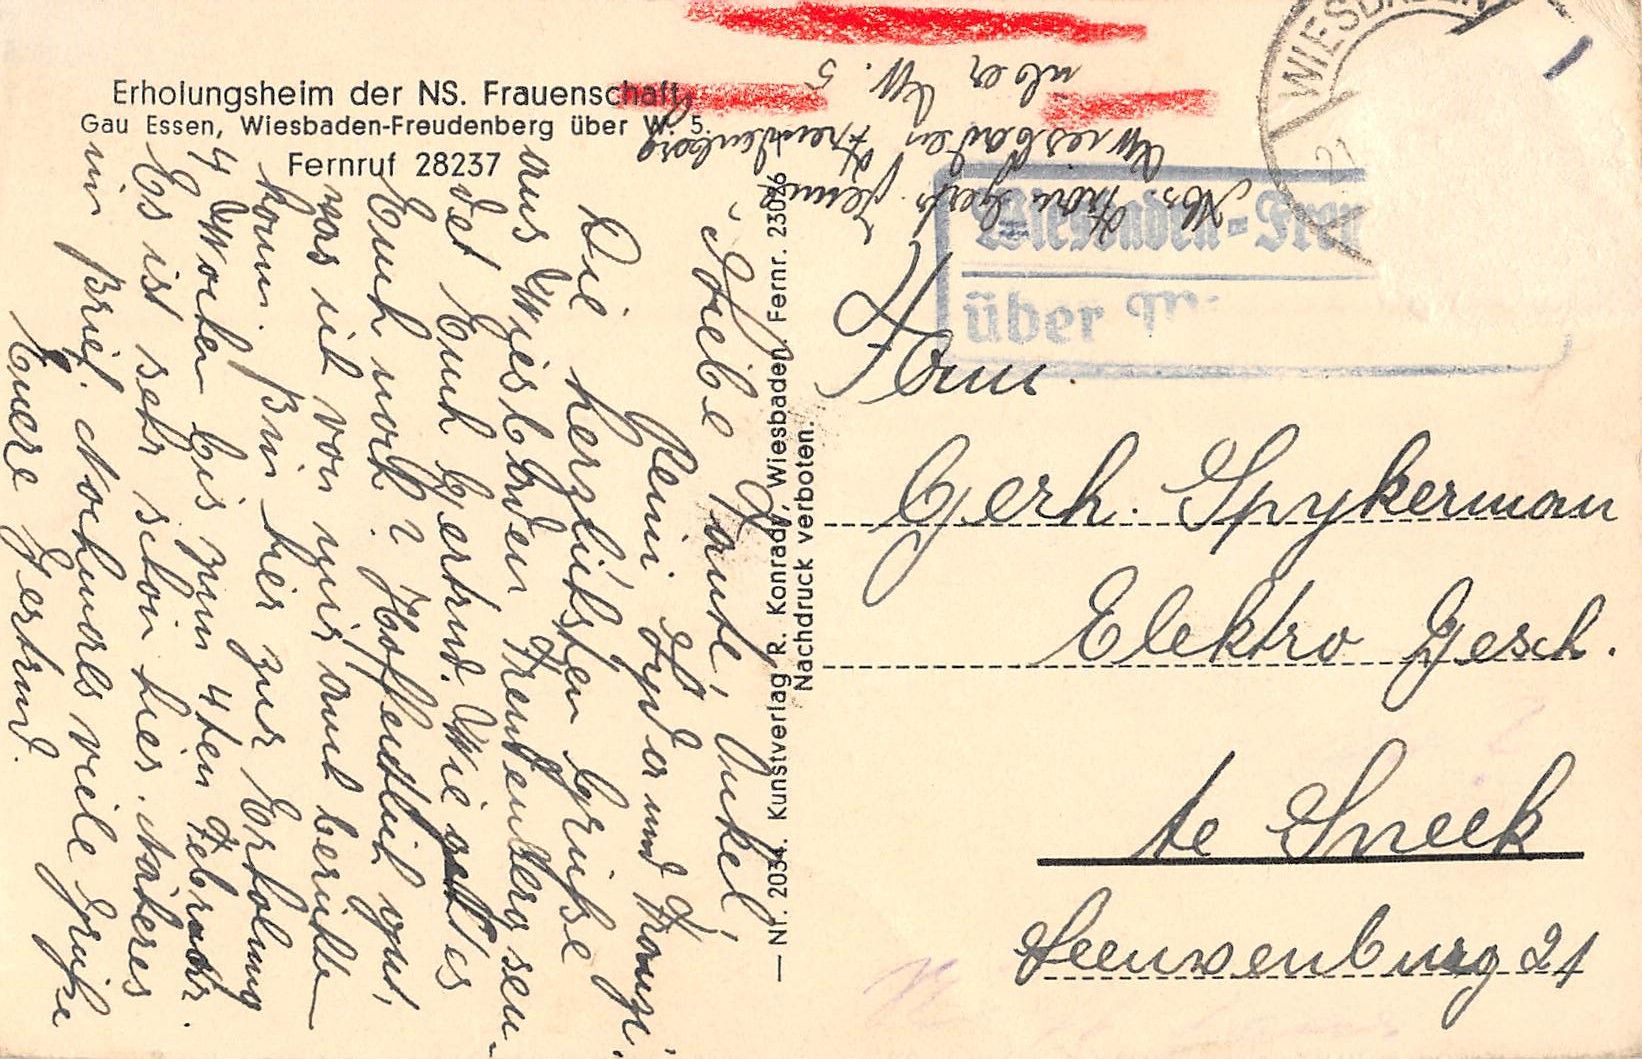 Erholungsheim der NS. Frauenschaft,
Gau Essen, Wiesbaden-Freudenberg über W. 5.
Fernruf 28237
Liebe Tante, Onkel,
und Franzi.
Die herzlichsten Grüße
aus Wiesbaden Freudenberg sen-
det Euch Gertrud. Wie geht es
Euch noch? Hoffentlich gut,
was ich von mir auch berichten
kann. Bin hier zur Erholung
4 Wochen bis zum 4ten Februar.
Es ist sehr schön hier. Näheres
im Brief. Nochmals viele Grüße
Euere Gertrud.
— Nr. 2034. Kunstverlag R. Konrady, Wiesbaden. Fernr. 23026
Nachdruck verboten.
Abs.
Wiesbaden Freudenberg
über W. 5
WIESBADEN
21
Wiesbaden-Freu
über W
Fam.
Gerh. Spykerman
Elektro Gesch.
te Sneek
Leeuwenburg 21